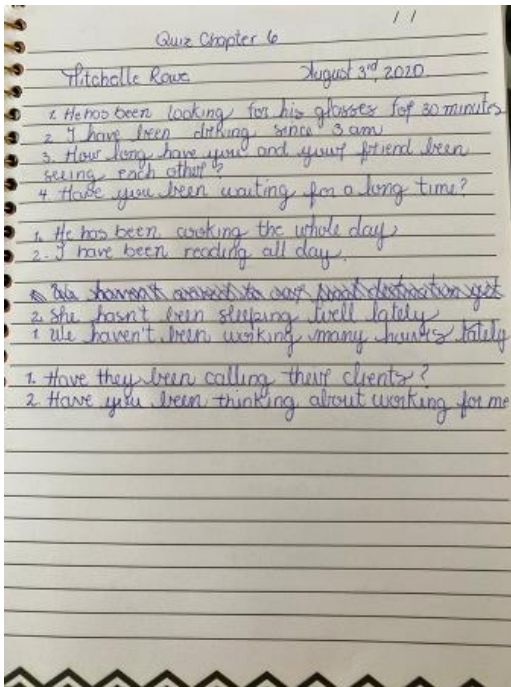 / /
Quiz Chapter 6
Mitchelle Rowe August 3rd, 2020.
1. He has been looking for his glasses for 30 minutes
2. I have been driving since 3 am
3. How long have you and your friend been
seeing each other?
4. Have you been waiting for a long time?
1. He has been working the whole day
2. I have been reading all day.
2. She hasn't been sleeping well lately
1. We haven't been working many hours lately
1. Have they been calling their clients?
2. Have you been thinking about working for me